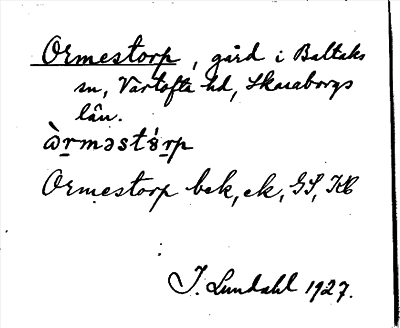 Ormestorp, gård i Baltaks
sn, Vartofta hd, Skaraborgs
län.
Ormestorp bek, ek, GS, KB
I. Lundahl 1927.